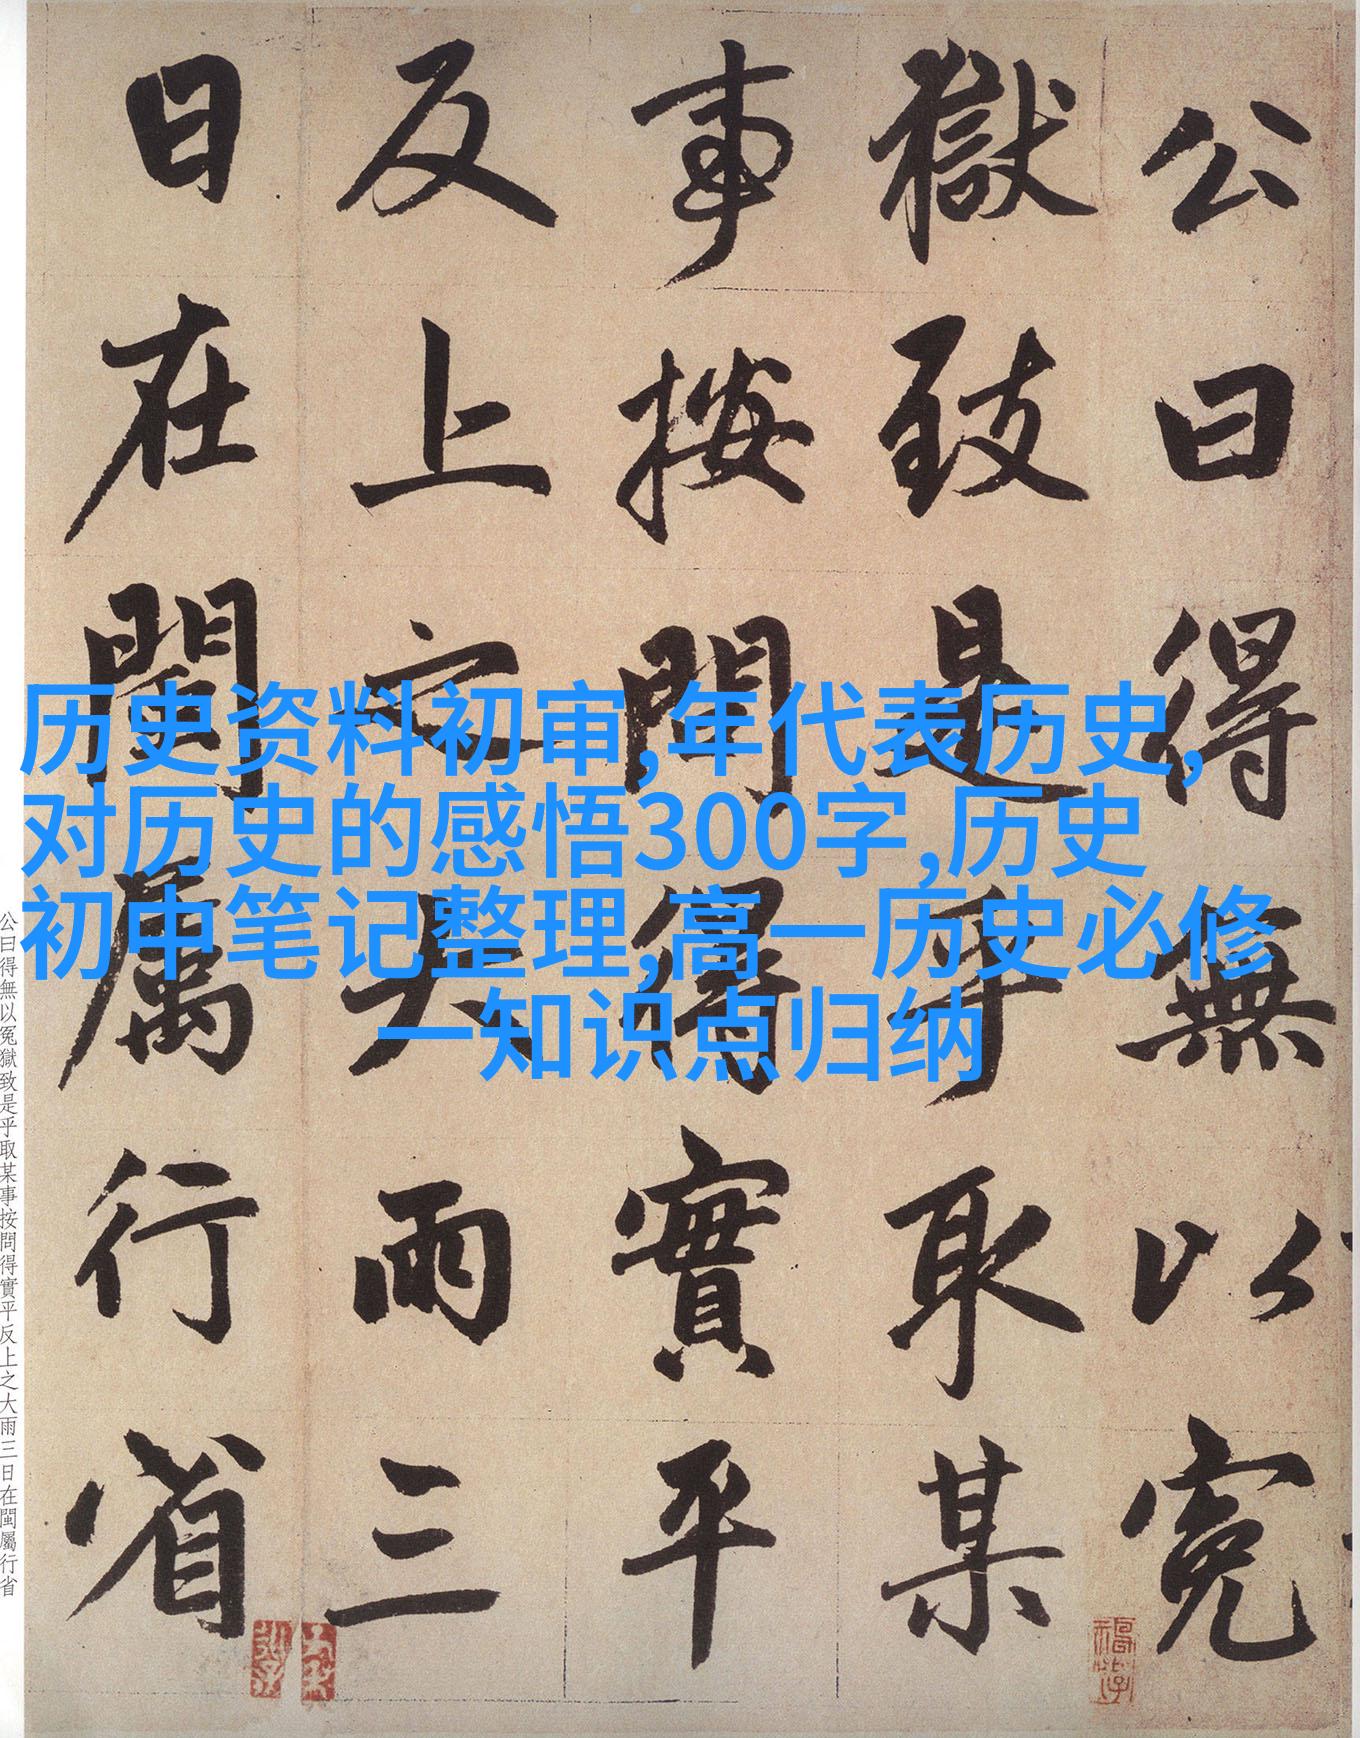 公曰得無以冤
獄致是乎取某
事按問得實平
反上之大雨三
日在閩屬行省
历史资料初审,年代表历史,
对历史的感悟300字,历史
初中笔记整理,高一历史必修
一知识点归纳
公曰得無以冤獄致是乎取某事按問得實平反上之大雨三日在閩屬行省